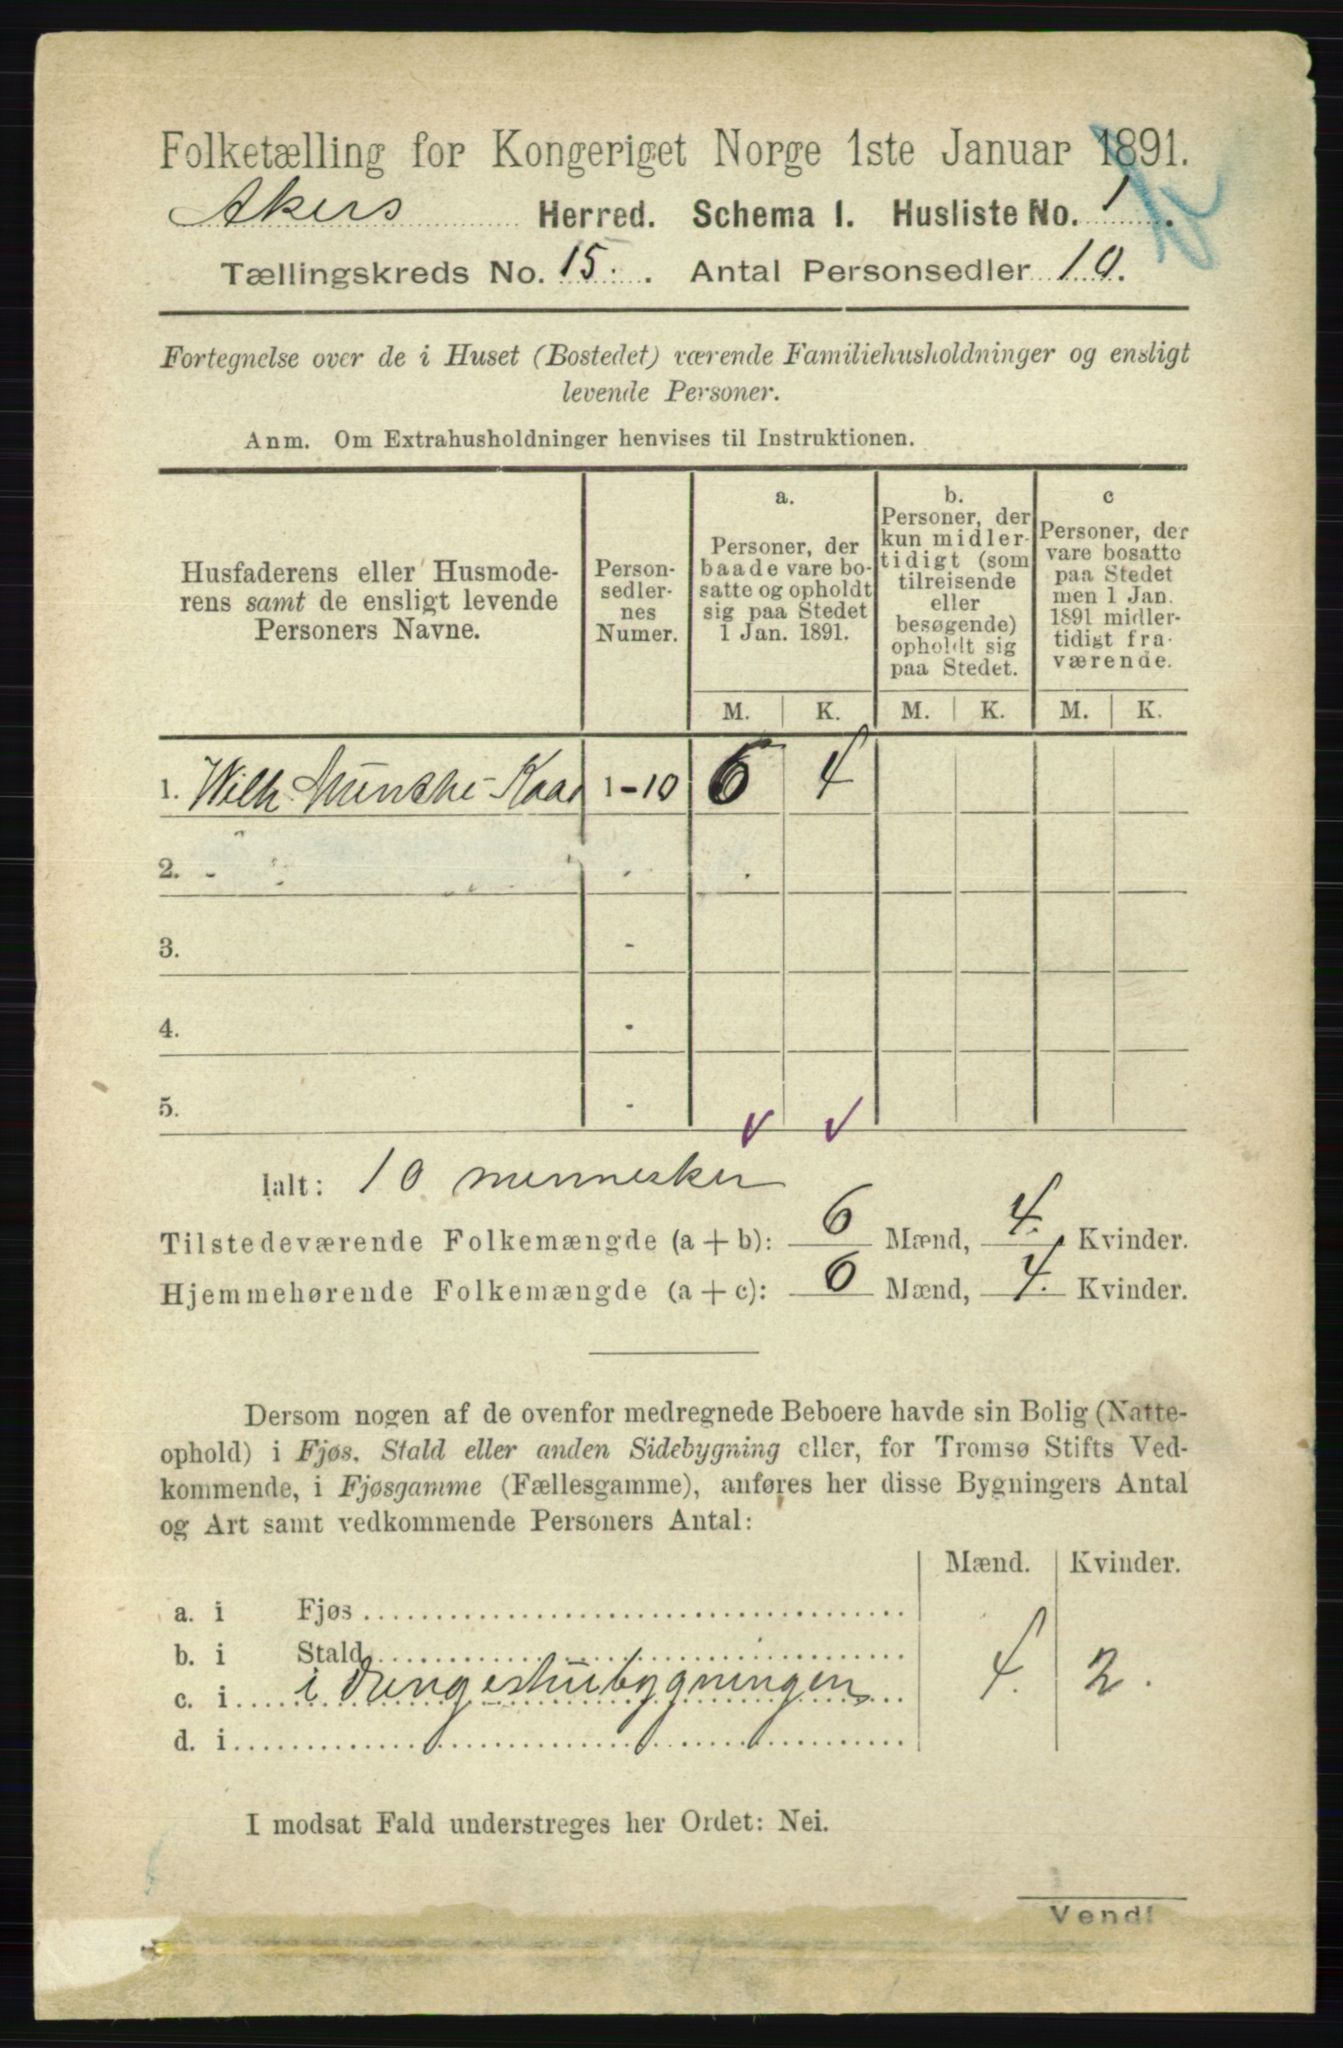 Folketælling for Kongeriget Norge 1ste Januar 1891.
Akers Herred. Schema 1. Husliste No. 1.
Tællingskreds No. 15. Antal Personsedler 10.
Fortegnelse over de i Huset (Bostedet) værende Familiehusholdninger og ensligt
levende Personer.
Anm. Om Extrahusholdninger henvises til Instruktionen.
Husfaderens eller Husmode-
rens samt de ensligt levende
Personers Navne.
Person-
sedler-
nes
Numer.
a.
Personer, der
baade vare bo-
satte og opholdt
sig paa Stedet
1 Jan. 1891.
b.
Personer, der
kun midler-
tidigt (som
tilreisende
eller
besøgende)
opholdt sig
paa Stedet.
c
Personer, der
vare bosatte
paa Stedet
men 1 Jan.
1891 midler-
tidigt fra-
værende.
M. K. M. K. M. K.
1. Wilh. 1-10 6 4
2.
3. -
4. -
5. -
Ialt: 10 mennesker
Tilstedeværende Folkemængde (a + b): 6 Mænd, 4. Kvinder.
Hjemmehørende Folkemængde (a + c): 6 Mænd, 4. Kvinder.
Dersom nogen af de ovenfor medregnede Beboere havde sin Bolig (Natte-
ophold) i Fjøs, Stald eller anden Sidebygning eller, for Tromsø Stifts Ved-
kommende, i Fjøsgamme (Fællesgamme), anføres her disse Bygningers Antal
og Art samt vedkommende Personers Antal:
Mænd. Kvinder.
a. i Fjøs
b. i Stald
c. i i 4. 2.
d. i
I modsat Fald understreges her Ordet: Nei.
Vend!